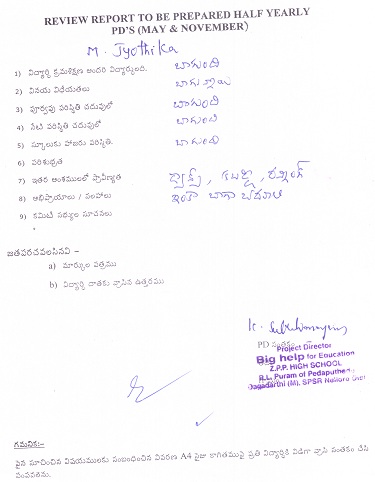 REVIEW REPORT TO BE PREPARED HALF YEARLY
PD'S (MAY & NOVEMBER)
M. Jyothika
1) విద్యార్థి క్రమశిక్షణ అందరి విద్యార్థులది. బాగుంది
2) వినయ విధేయతలు బాగున్నాయి
3) పూర్వపు పరిస్థితి చదువులో బాగుంది
4) నేటి పరిస్థితి చదువులో బాగుంది
5) స్కూలుకు హాజరు పరిస్థితి. బాగుంది
6) పరిశుభ్రత
7) ఇతర అంశములలో ప్రావీణ్యత డ్రాయింగ్
8) అభిప్రాయాలు / సలహాలు ఇంకా బాగా చదవాలి
9) కమిటి సభ్యుల సూచనలు
జతపరచవలసినవి –
a) మార్కుల పత్రము
b) విద్యార్థి దాతకు వ్రాసిన ఉత్తరము
PD సంతకం
Project Director
Big help for Education
Z.P.P. HIGH SCHOOL
R.L. Puram of Pedaputhedu
Jagadarthi (M), SPSR Nellore Dist
గమనిక:-
పైన సూచించిన విషయములకు సంబంధించిన వివరణ A4 సైజు కాగితముపై ప్రతి విద్యార్థికి విడిగా వ్రాసి సంతకం చేసి
పంపవలెను.